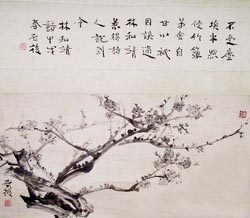 不受塵
埃半點
侵竹籬
茅舍自
甘心
因誤
林和靖
惹得詩
人說到
今
林和靖
詩甲
春